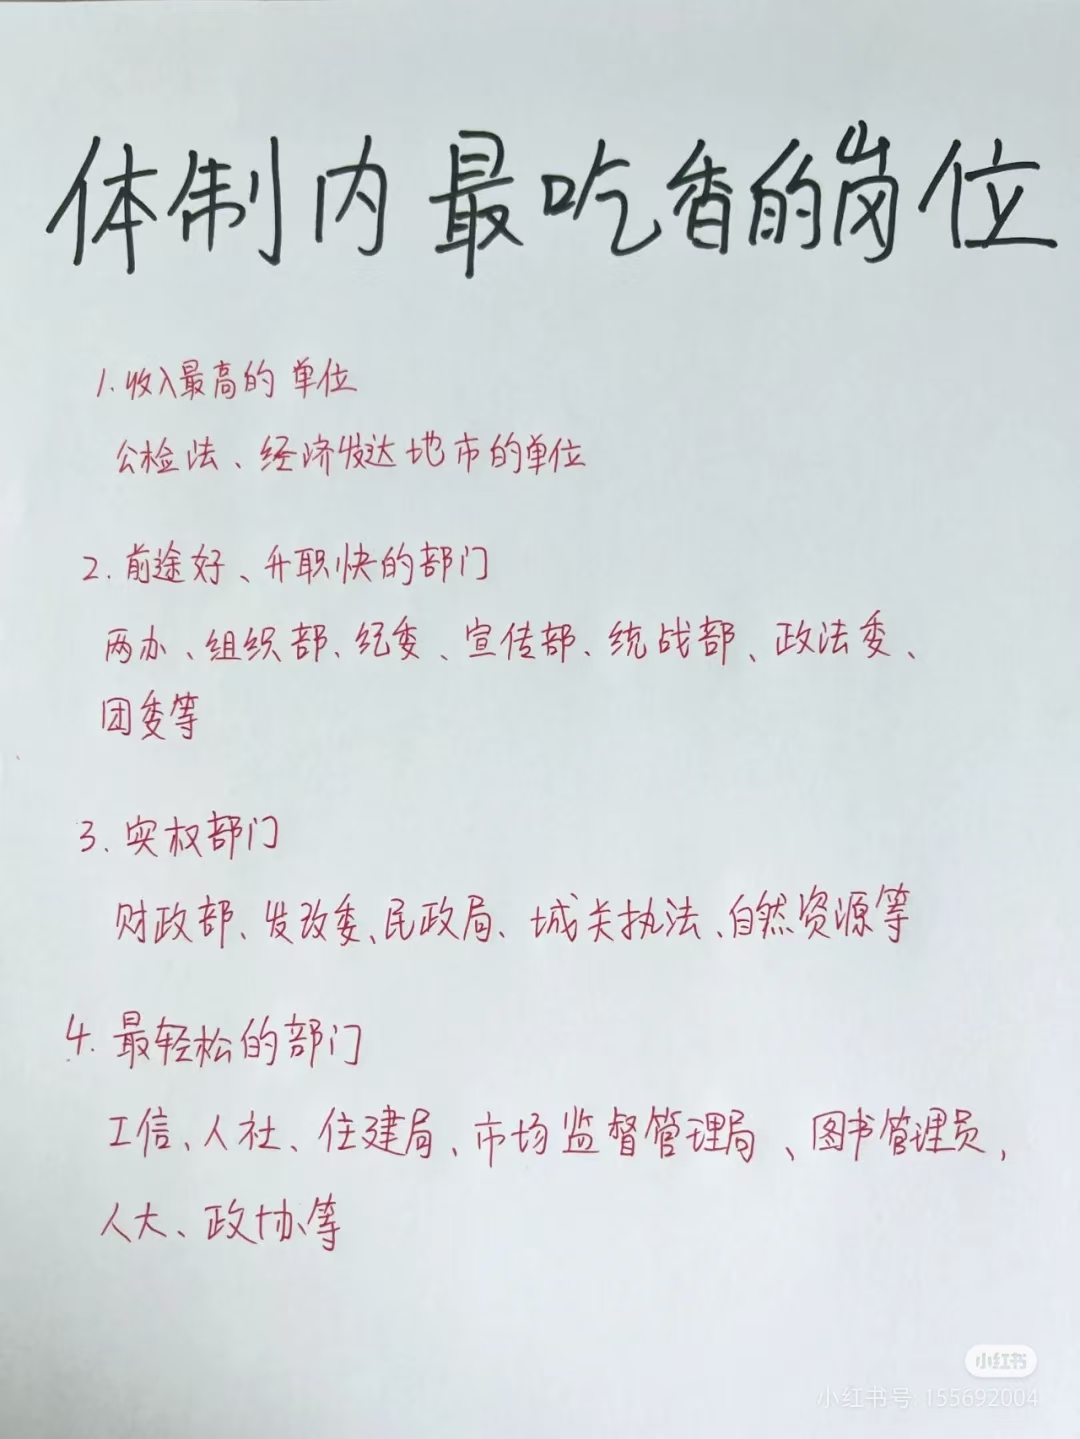 体制内最吃香的岗位
1.收入最高的单位
公检法、经济发达地市的单位
2.前途好、升职快的部门
两办、组织部、纪委、宣传部、统战部、政法委、
团委等
3.实权部门
财政部、发改委、民政局、城关执法、自然资源等
4.最轻松的部门
工信、人社、住建局、市场监督管理局、图书管理员,
人大、政协等
小红书
小红书号:155692004